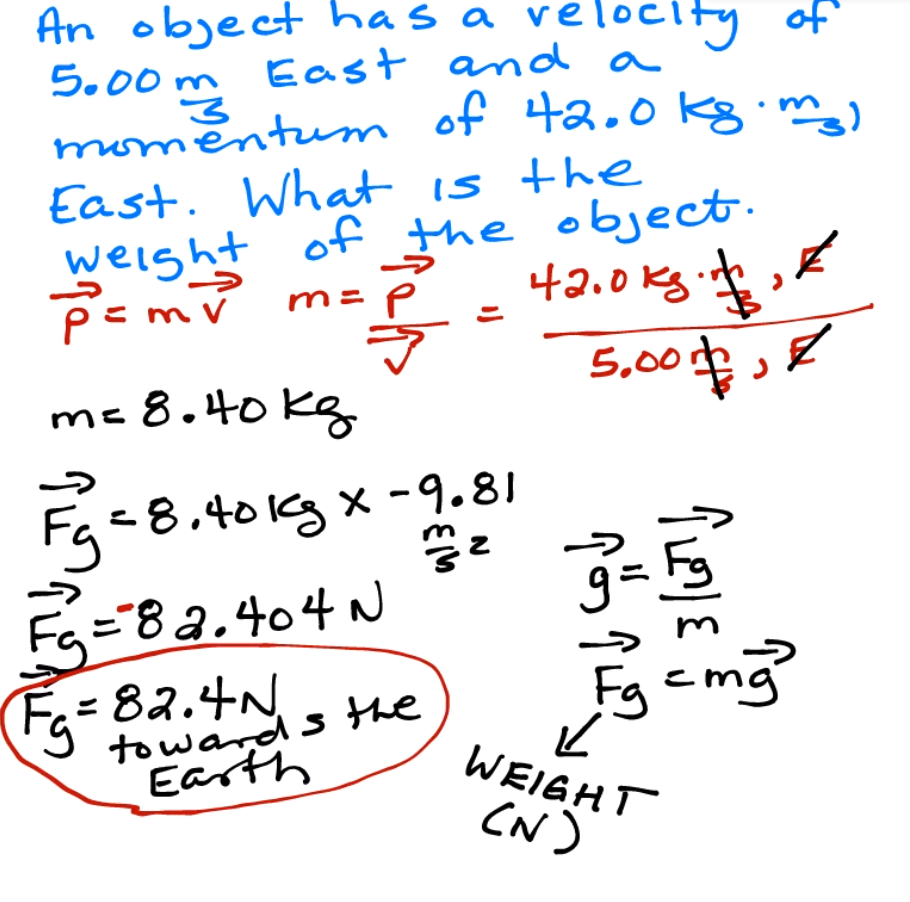 An object has a velocity of
5.00 m/s East and a
momentum of 42.0 kg·m/s,
East. What is the
weight of the object.
p⃗ = m v⃗   m = p⃗/v⃗ = 42.0 kg·m/s, E / 5.00 m/s, E
m = 8.40 kg
F⃗g = 8.40 kg x -9.81 m/s²
g⃗ = F⃗g/m
F⃗g = -82.404 N
F⃗g = mg⃗
F⃗g = 82.4 N
towards the
Earth
WEIGHT
(N)